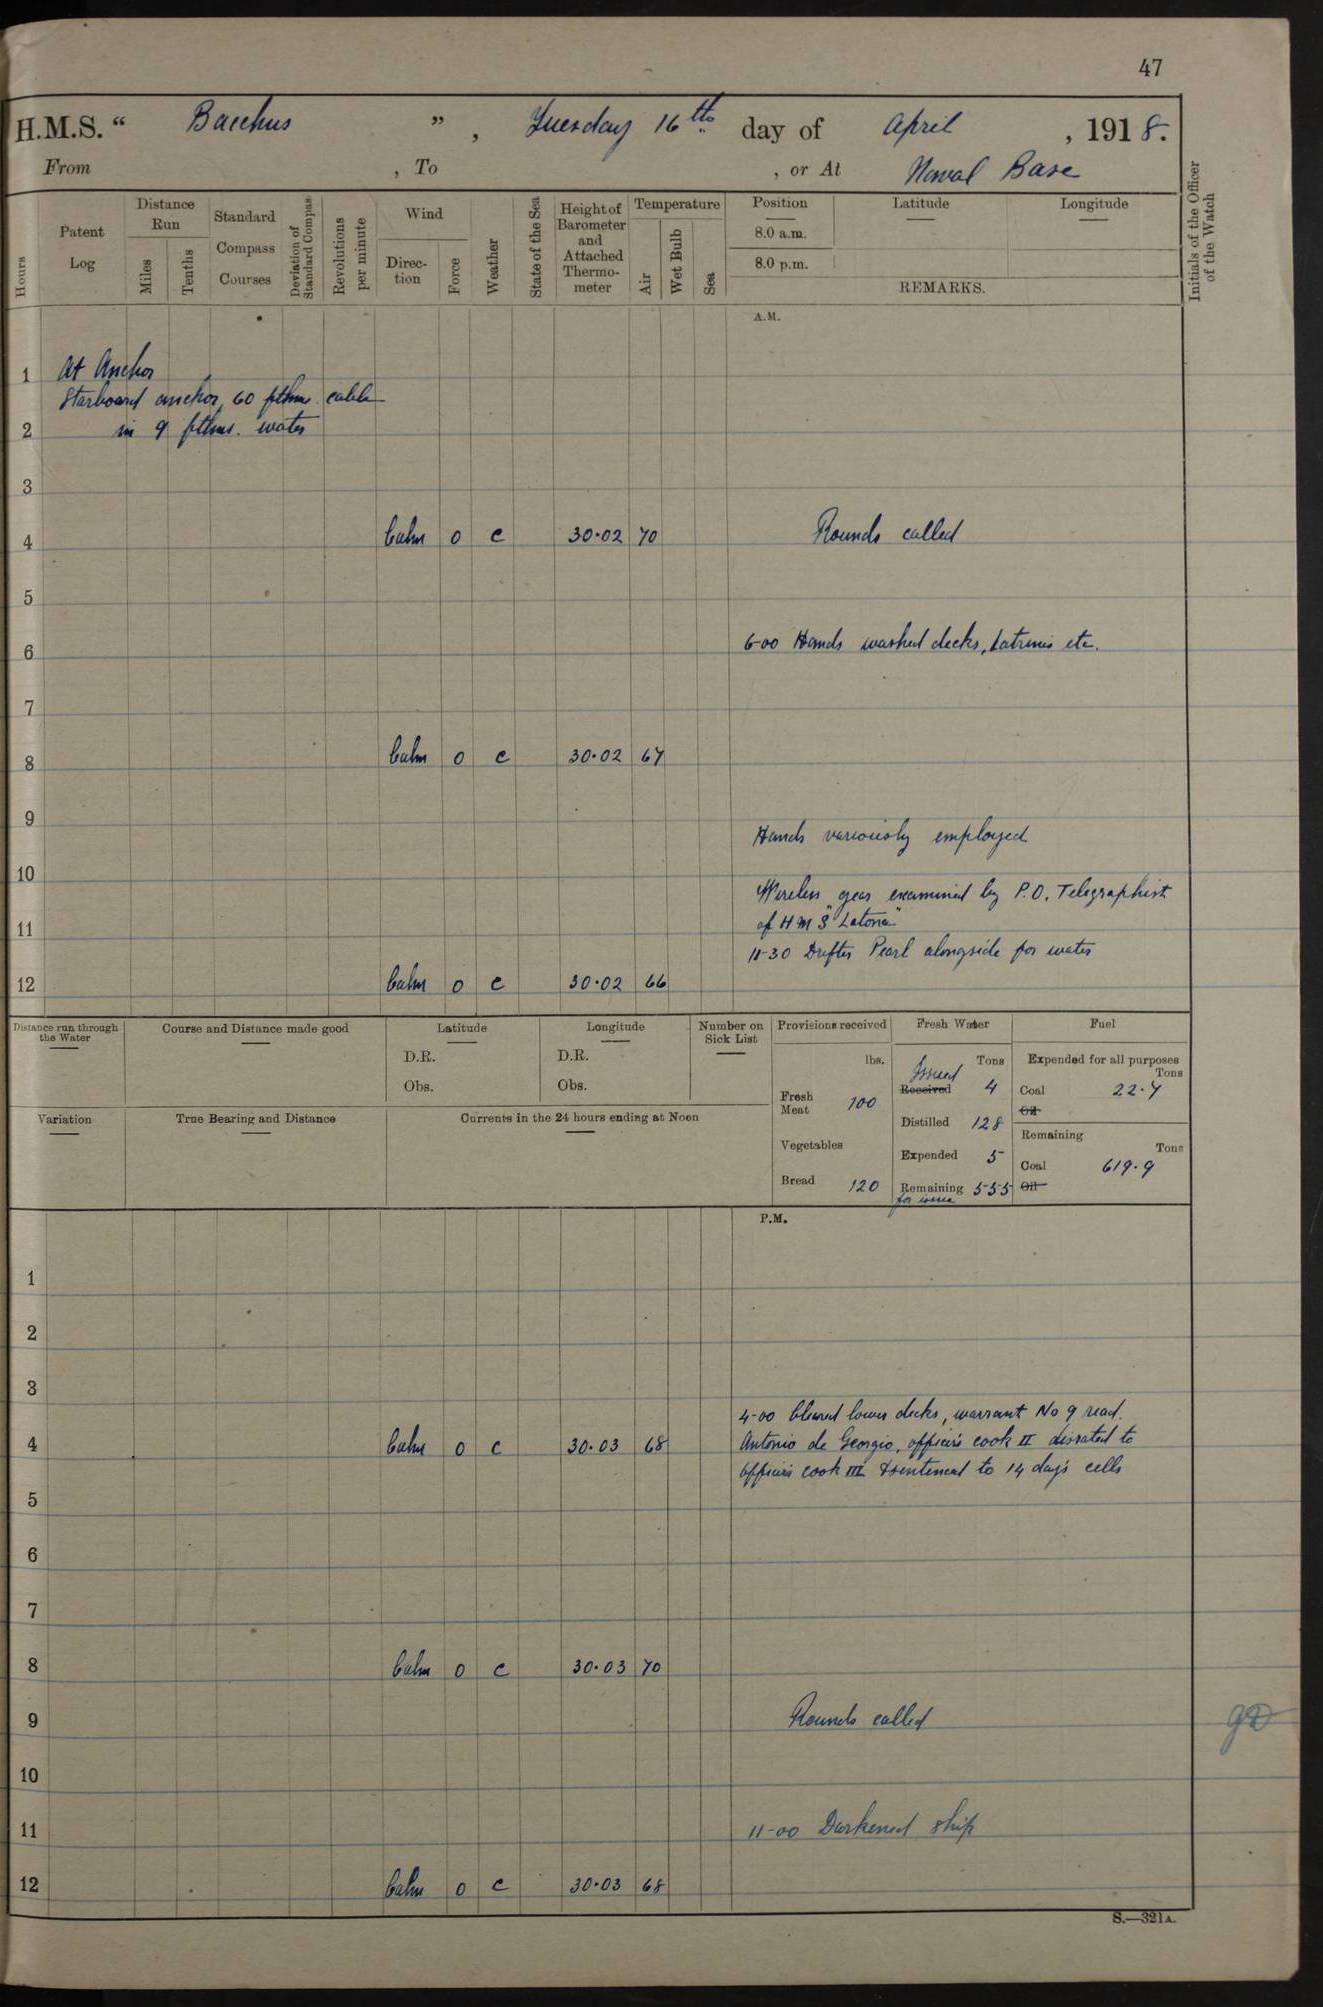 47
H.M.S. “ Bacchus ” , Tuesday 16th day of April , 1918.
From , To , or At Naval Base
Hours
Patent Log
Distance Run
Miles
Tenths
Standard Compass Courses
Deviation of Standard Compass
Revolutions per minute
Wind
Direction
Force
Weather
State of the Sea
Height of Barometer and Attached Thermometer
Temperature
Air
Wet Bulb
Sea
Position
Latitude
Longitude
8.0 a.m.
8.0 p.m.
REMARKS.
Initials of the Officer of the Watch
A.M.
1 At Anchor
Starboard anchor, 60 fthms cable
2 in 9 fthms. water
3
4 Calm 0 c 30·02 70 Rounds called
5
6 6-00 Hands washed decks, Latrines etc.
7
8 Calm 0 c 30·02 67
9 Hands variously employed
10 Wireless gear examined by P.O. Telegraphist
11 of H M S "Latona"
11-30 Drifter Pearl alongside for water
12 Calm 0 c 30·02 66
Distance run through the Water
Course and Distance made good
Latitude
D.R.
Obs.
Longitude
D.R.
Obs.
Number on Sick List
Provisions received
lbs.
Fresh Meat 100
Vegetables
Bread 120
Fresh Water
Tons
Issued
Received 4
Distilled 128
Expended 5
Remaining 555
for issue
Fuel
Expended for all purposes
Tons
Coal 22·7
Oil
Remaining
Tons
Coal 619·9
Oil
Variation
True Bearing and Distance
Currents in the 24 hours ending at Noon
P.M.
1
2
3
4-00 Cleared lower decks, warrant No 9 read.
4 Calm 0 c 30·03 68 Antonio de Georgio, officer's cook II disrated to
officer's cook III & sentenced to 14 day's cells
5
6
7
8 Calm 0 c 30·03 70
9 Rounds called
10
11 11-00 Darkened ship
12 Calm 0 c 30·03 68
S.—321A.